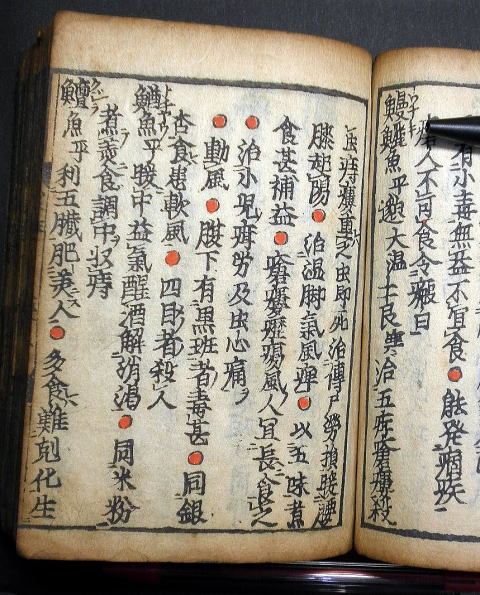 有小毒無益不宜食●能発痼疾
人不可食令瘢白
鰻鱺魚平 大温士良寒治五痔瘡瘻殺
之虫即死治傳尸勞損暖腰
膝起陽●治湿脚氣風痺●以五味煮
食甚補益●瘡瘻癧瘍風人宜長食之
●治小児疳労及虫心痛
●動風●腹下有黒班者毒甚●同銀
杏食患軟風●四目者殺人
鰌魚平暖中益氣醒酒解消渇●同米粉
煮羹食調中収痔
鱣魚平利五臓肥美人●多食難剋化生